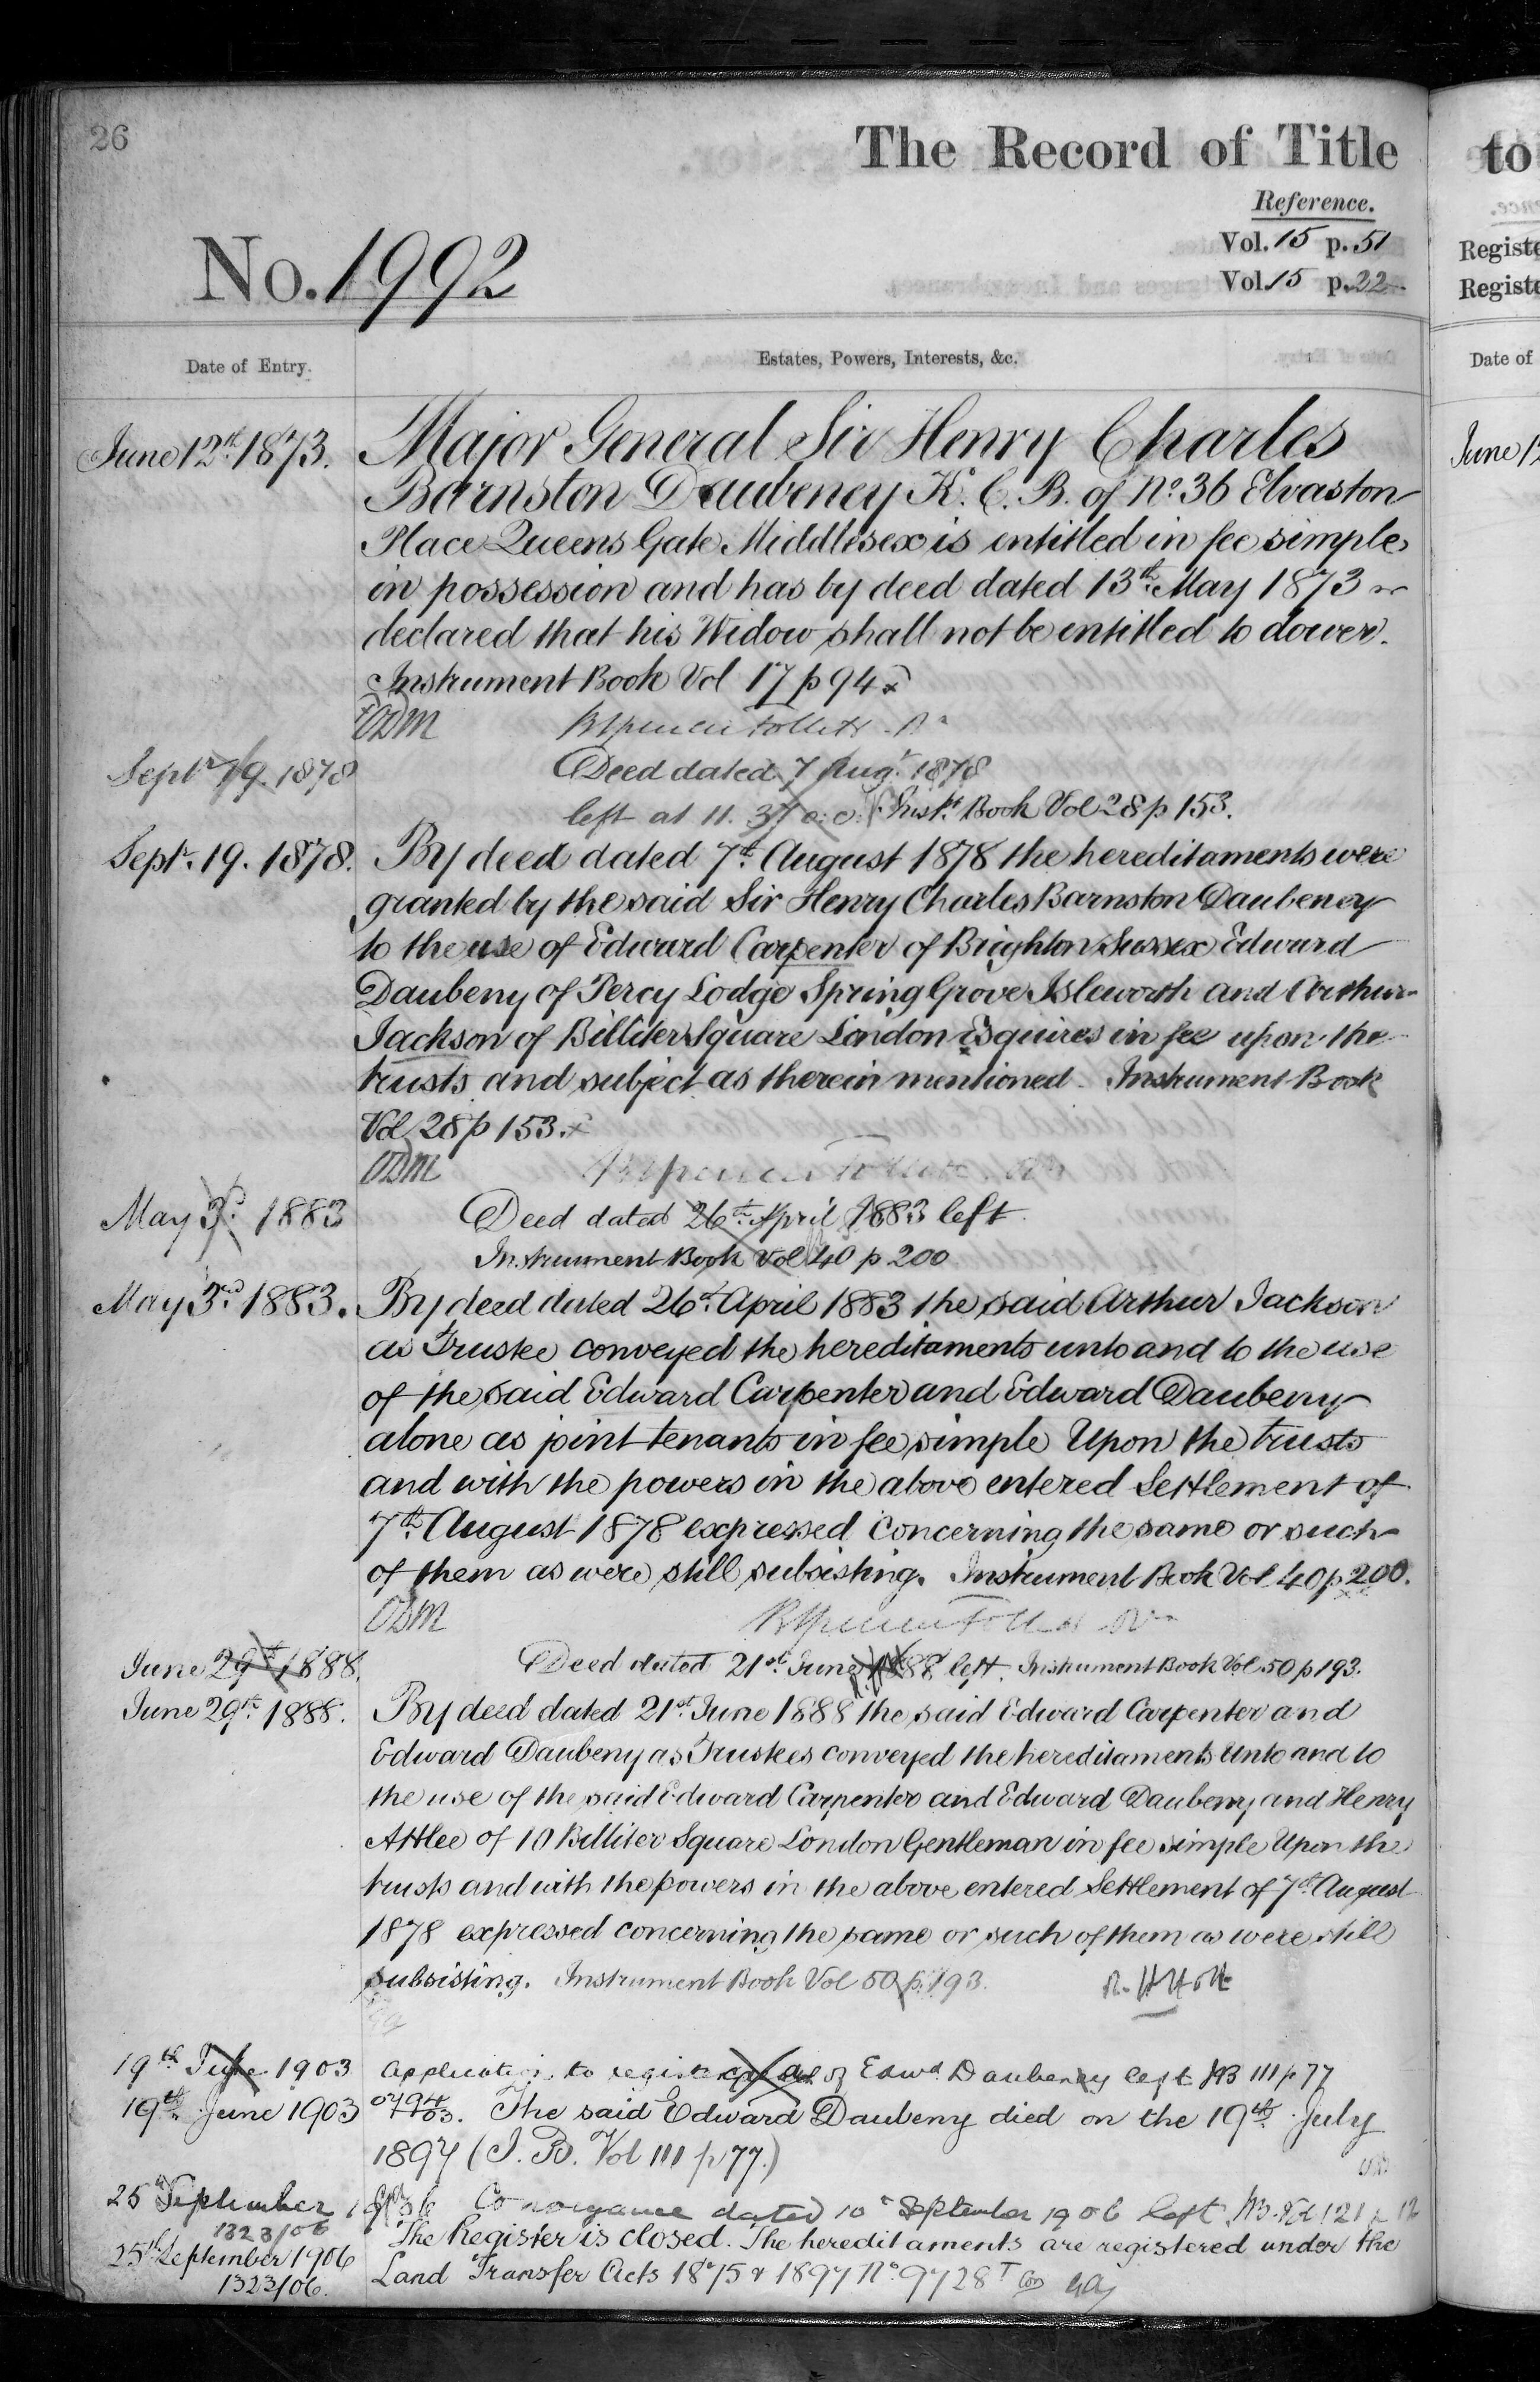 26
The Record of Title
Reference.
No. 1992
Vol. 15 p. 51
Vol. 15 p. 22
Date of Entry.
Estates, Powers, Interests, &c.
June 12th 1873. Major General Sir Henry Charles
Barnston Daubeney K. C. B. of No. 36 Elvaston
Place Queens Gate Middlesex is entitled in fee simple
in possession and has by deed dated 13th May 1873
declared that his Widow shall not be entitled to dower.
Instrument Book Vol 17 p 94
Septr 19. 1878 Deed dated 7 Augt 1878
left at 11. 37 Inst. Book Vol 28 p 153.
Septr. 19. 1878. By deed dated 7th August 1878 the hereditaments were
granted by the said Sir Henry Charles Barnston Daubeney
to the use of Edward Carpenter of Brighton Sussex Edward
Daubeny of Percy Lodge Spring Grove Isleworth and Arthur
Jackson of Billiter Square London Esquires in fee upon the
trusts and subject as therein mentioned. Instrument Book
Vol 28 p 153.
May 3rd 1883 Deed dated 26th April 1883 left
Instrument Book Vol 40 p 200
May 3rd 1883. By deed dated 26th April 1883 the said Arthur Jackson
as Trustee conveyed the hereditaments unto and to the use
of the said Edward Carpenter and Edward Daubeny
alone as joint tenants in fee simple Upon the trusts
and with the powers in the above entered Settlement of
7th August 1878 expressed concerning the same or such
of them as were still subsisting. Instrument Book Vol 40 p 200.
June 29th 1888. Deed dated 21st June 1888 left. Instrument Book Vol. 50 p 193.
June 29th 1888. By deed dated 21st June 1888 the said Edward Carpenter and
Edward Daubeny as Trustees conveyed the hereditaments Unto and to
the use of the said Edward Carpenter and Edward Daubeny and Henry
Attlee of 10 Billiter Square London Gentleman in fee simple Upon the
trusts and with the powers in the above entered Settlement of 7th August
1878 expressed concerning the same or such of them as were still
subsisting. Instrument Book Vol 50 p. 193.
19th June 1903 Application to register of Edwd Daubeny left IB 111 p 77
19th June 1903 The said Edward Daubeny died on the 19th July
1897 (I. B. Vol 111 p 77.)
25 September 1906 Conveyance dated 10 September 1906 left IB. Vol 121 p 12
1323/06
25th September 1906 The Register is closed. The hereditaments are registered under the
1323/06. Land Transfer Acts 1875 & 1897 No. 9728
to
Date of